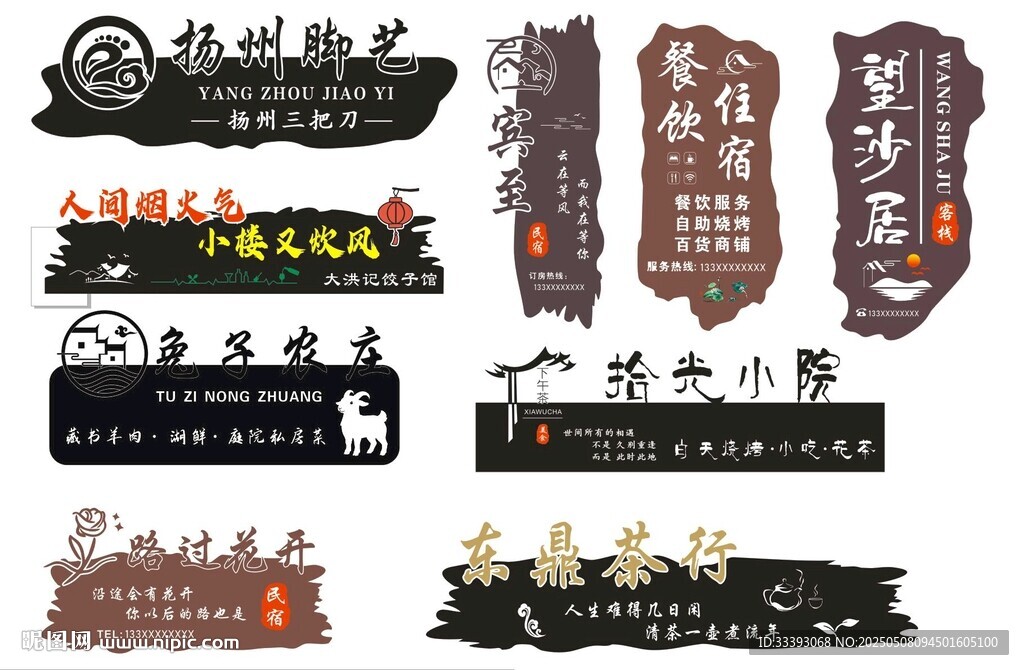 扬州脚艺
YANG ZHOU JIAO YI
扬州三把刀
人间烟火气
小楼又炊风
大洪记饺子馆
兔子农庄
TU ZI NONG ZHUANG
藏书羊肉·湖鲜·庭院私房菜
宾至
云在等风
而我在等你
民宿
订房热线:
133XXXXXXXX
餐饮
住宿
餐饮服务
自助烧烤
百货商铺
服务热线: 133XXXXXXXX
望沙居
WANG SHA JU
客栈
133XXXXXXXX
拾光小院
下午茶
XIAWUCHA
美食
世间所有的相遇
不是 久别重逢
而是 此时此地
白天烧烤·小吃·花茶
路过花开
沿途会有花开
你以后的路也是
民宿
TEL: 133XXXXXXXX
东鼎茶行
人生难得几日闲
清茶一壶煮流年
昵图网 www.nipic.com
ID:33393068 NO:20250508094501605100